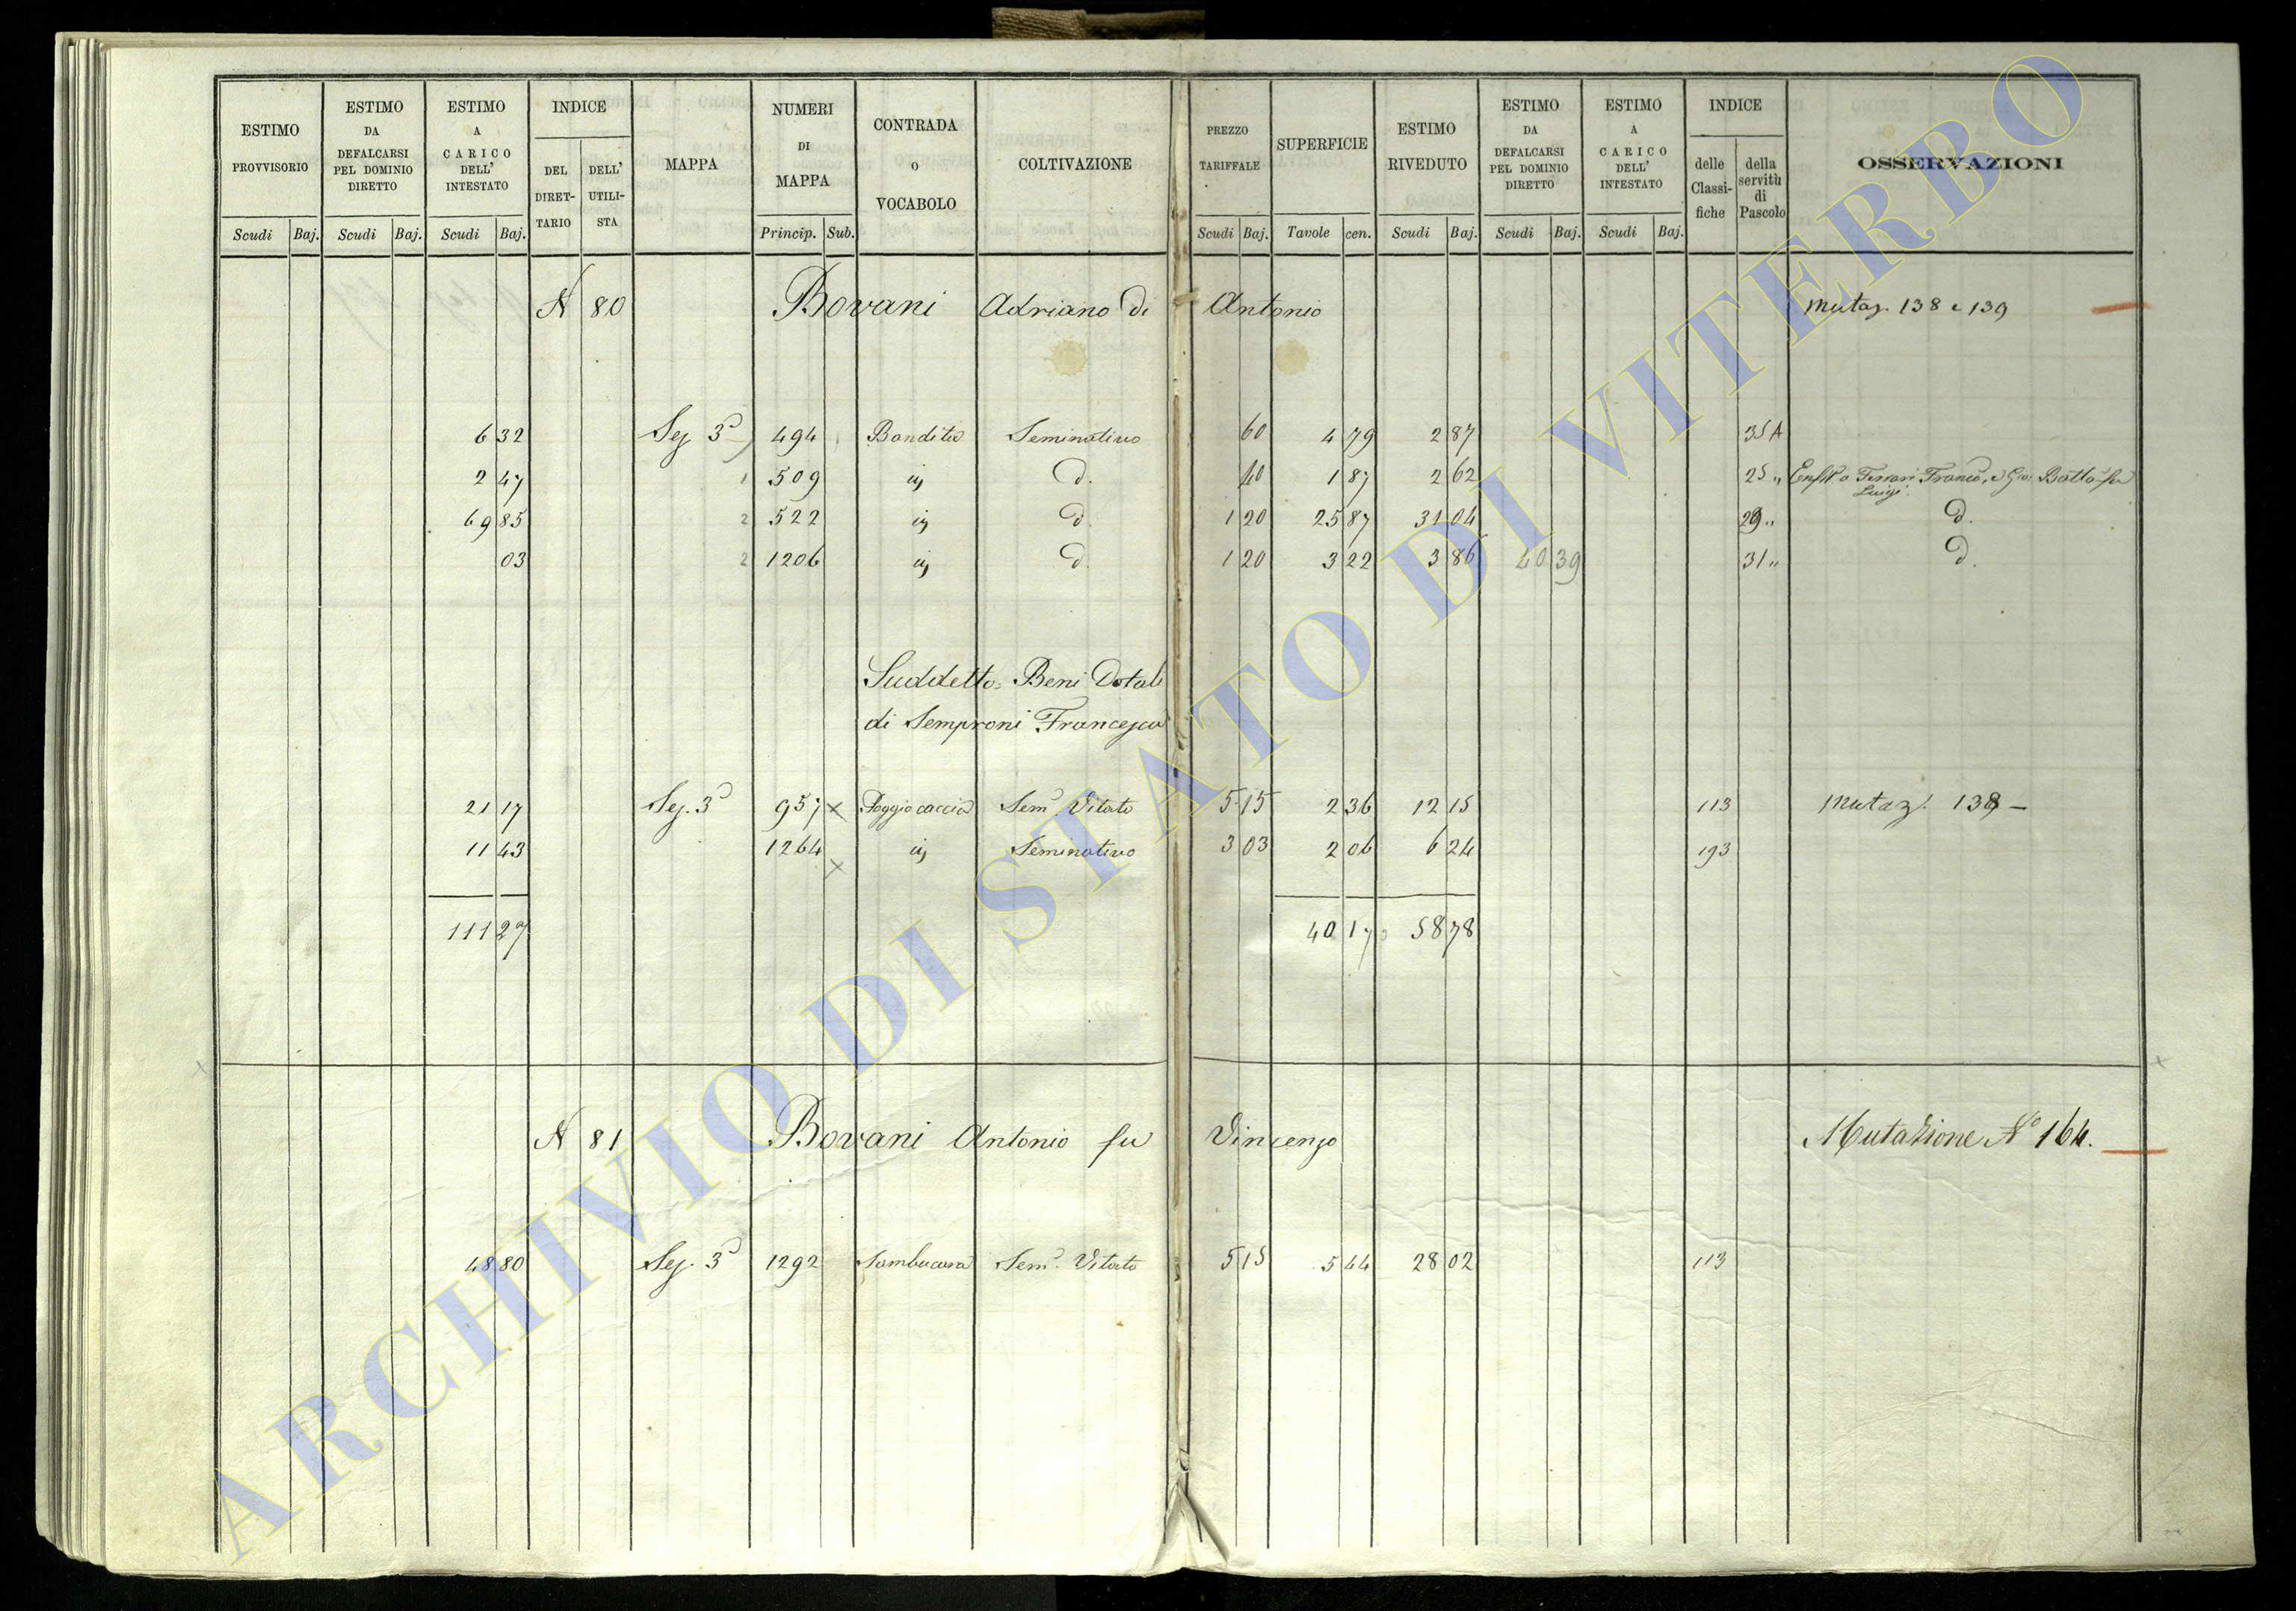 ESTIMO PROVVISORIO
ESTIMO DA DEFALCARSI PEL DOMINIO DIRETTO
ESTIMO A CARICO DELL' INTESTATO
INDICE
DEL DIRETTARIO
DELL' UTILISTA
MAPPA
NUMERI DI MAPPA
CONTRADA O VOCABOLO
COLTIVAZIONE
PREZZO TARIFFALE
SUPERFICIE
ESTIMO RIVEDUTO
ESTIMO DA DEFALCARSI PEL DOMINIO DIRETTO
ESTIMO A CARICO DELL' INTESTATO
INDICE
delle Classifiche
della servitù di Pascolo
OSSERVAZIONI
Scudi Baj. Scudi Baj. Scudi Baj. Princip. Sub. Scudi Baj. Tavole cen. Scudi Baj. Scudi Baj. Scudi Baj.
N 80 Bovani Adriano di Antonio Mutaz. 138 e 139
6 32 Sez. 3ª 494 Bandita Seminativo 60 4 79 2 87 35 A
2 47 1 509 id. 1 87 2 62 25 " Ferrari Franco, e Gio: Batta fu Luigi
69 85 2 522 id. 1 20 25 87 31 04 29 " d.
03 2 1206 id. 1 20 3 22 3 86 40 39 31 " d.
Suddetto = Beni Dotali
di Semproni Francesca
21 17 Sez. 3ª 957 x Poggio caccia Semo. Vitato 5 15 2 36 12 15 113 Mutaz. 138 —
11 43 1264 x Seminativo 3 03 2 06 6 24 193
111 27 40 17 58 78
N 81 Bovani Antonio fu Vincenzo Mutazione No 164.
48 80 Sez. 3ª 1292 Sambucara Semo. Vitato 5 15 5 44 28 02 113
ARCHIVIO DI STATO DI VITERBO